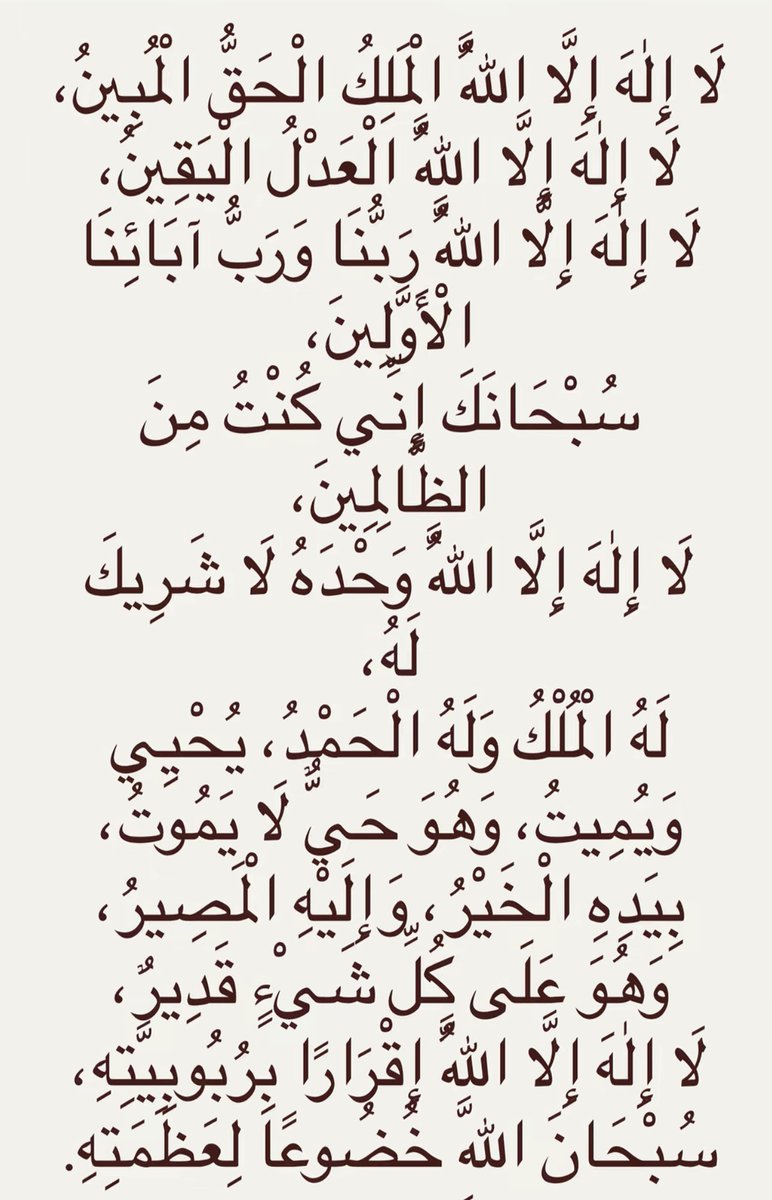 لَا إِلٰهَ إِلَّا اللهُ الْمَلِكُ الْحَقُّ الْمُبِينُ،
لَا إِلٰهَ إِلَّا اللهُ الْعَدْلُ الْيَقِينُ،
لَا إِلٰهَ إِلَّا اللهُ رَبُّنَا وَرَبُّ آبَائِنَا
الْأَوَّلِينَ،
سُبْحَانَكَ إِنِّي كُنْتُ مِنَ
الظَّالِمِينَ،
لَا إِلٰهَ إِلَّا اللهُ وَحْدَهُ لَا شَرِيكَ
لَهُ،
لَهُ الْمُلْكُ وَلَهُ الْحَمْدُ، يُحْيِي
وَيُمِيتُ، وَهُوَ حَيٌّ لَا يَمُوتُ،
بِيَدِهِ الْخَيْرُ، وَإِلَيْهِ الْمَصِيرُ،
وَهُوَ عَلَى كُلِّ شَيْءٍ قَدِيرٌ،
لَا إِلٰهَ إِلَّا اللهُ إِقْرَارًا بِرُبُوبِيَّتِهِ،
سُبْحَانَ اللهِ خُضُوعًا لِعَظَمَتِهِ.